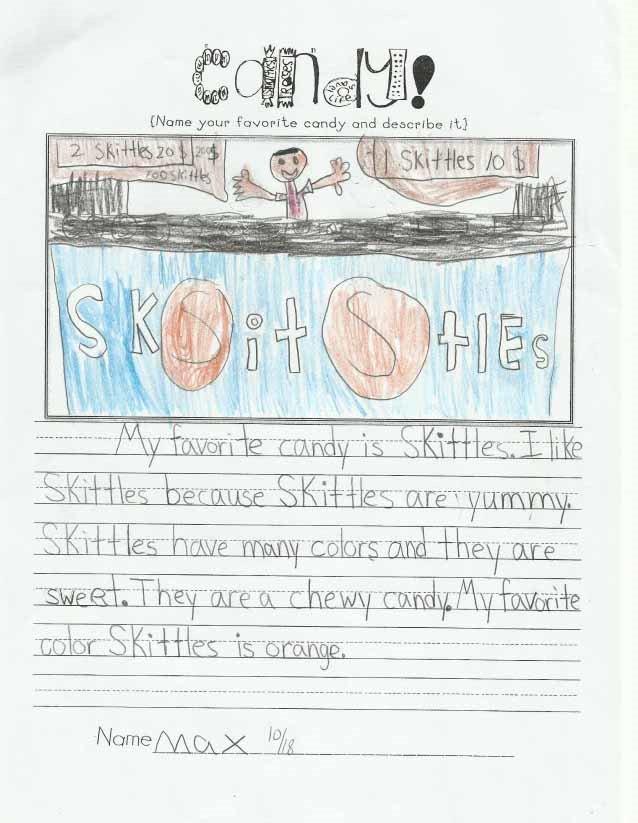 candy!
{Name your favorite candy and describe it}
2 Skittles 20 $ 200 $
200 Skittles
1 Skittles 10 $
SKSit StlEs
My favorite candy is Skittles. I like
Skittles because Skittles are yummy.
Skittles have many colors and they are
sweet. They are a chewy candy. My favorite
color Skittles is orange.
Name Max 10/18